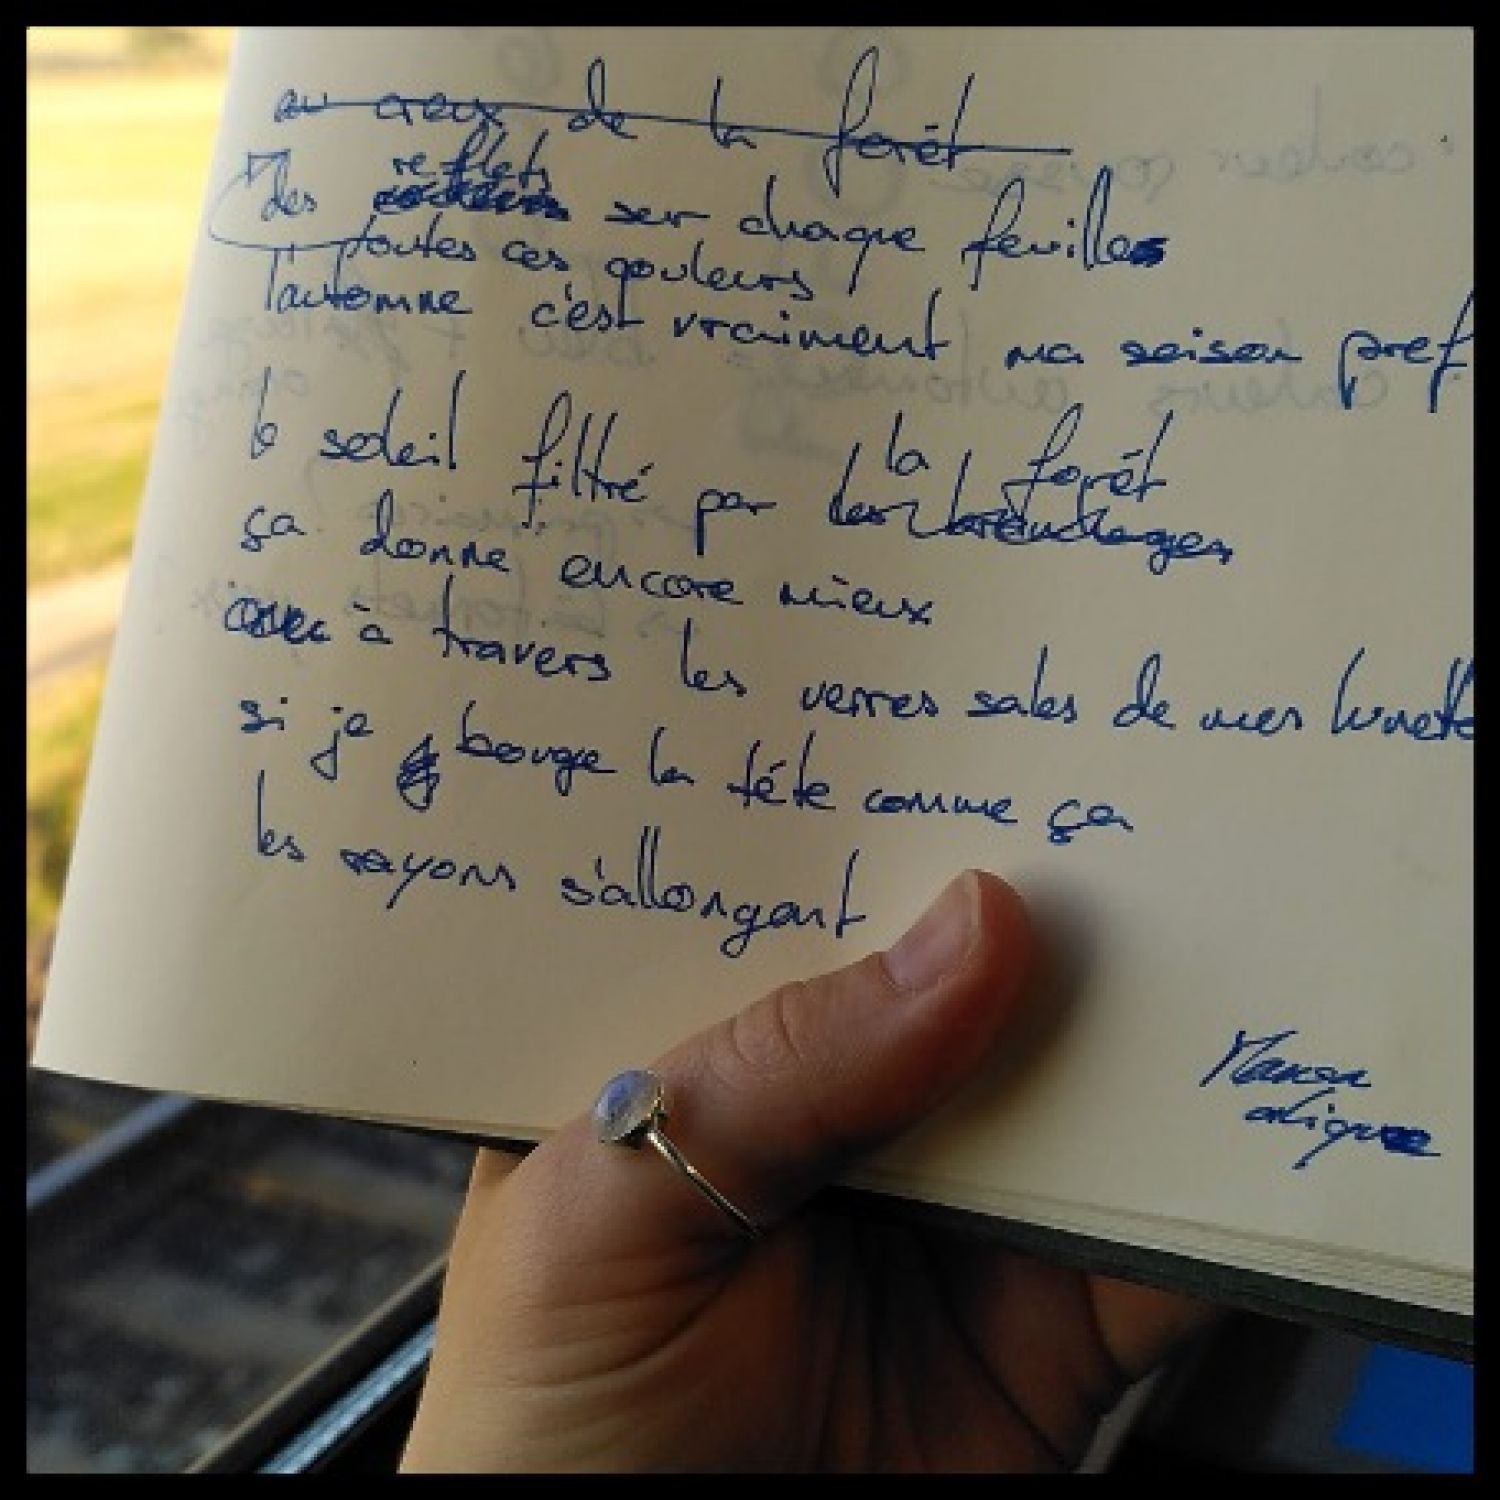 au creux de la forêt
reflets
des couleurs sur chaque feuille
toutes ces couleurs
l'automne c'est vraiment ma saison pref
la forêt
le soleil filtré par les branchages
ça donne encore mieux
avec à travers les verres sales de mes lunette
si je bouge la tête comme ça
les rayons s'allongent
Manon